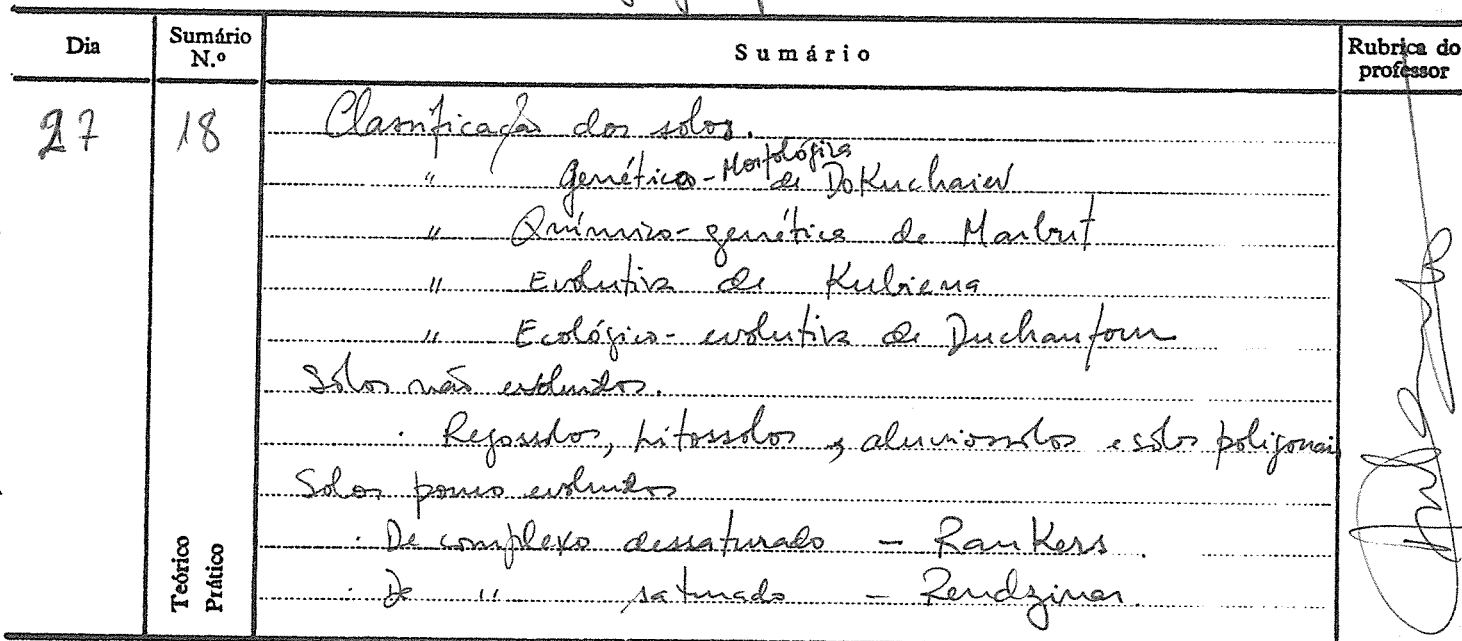 Dia
Sumário N.º
Sumário
Rubrica do professor
27
18
Classificação dos solos.
" Genético-Morfológica de Dokuchaiev
" Químico-genética de Marbut
" Evolutiva de Kubiena
" Ecológico-evolutiva de Duchaufour
Sólos não evoluidos.
. Regossolos, Litossolos, aluviossolos e solos poligonais
Solos pouco evoluidos
. De complexo dessaturado - Rankers.
. De " saturado - Rendzinas.
Teórico
Prático